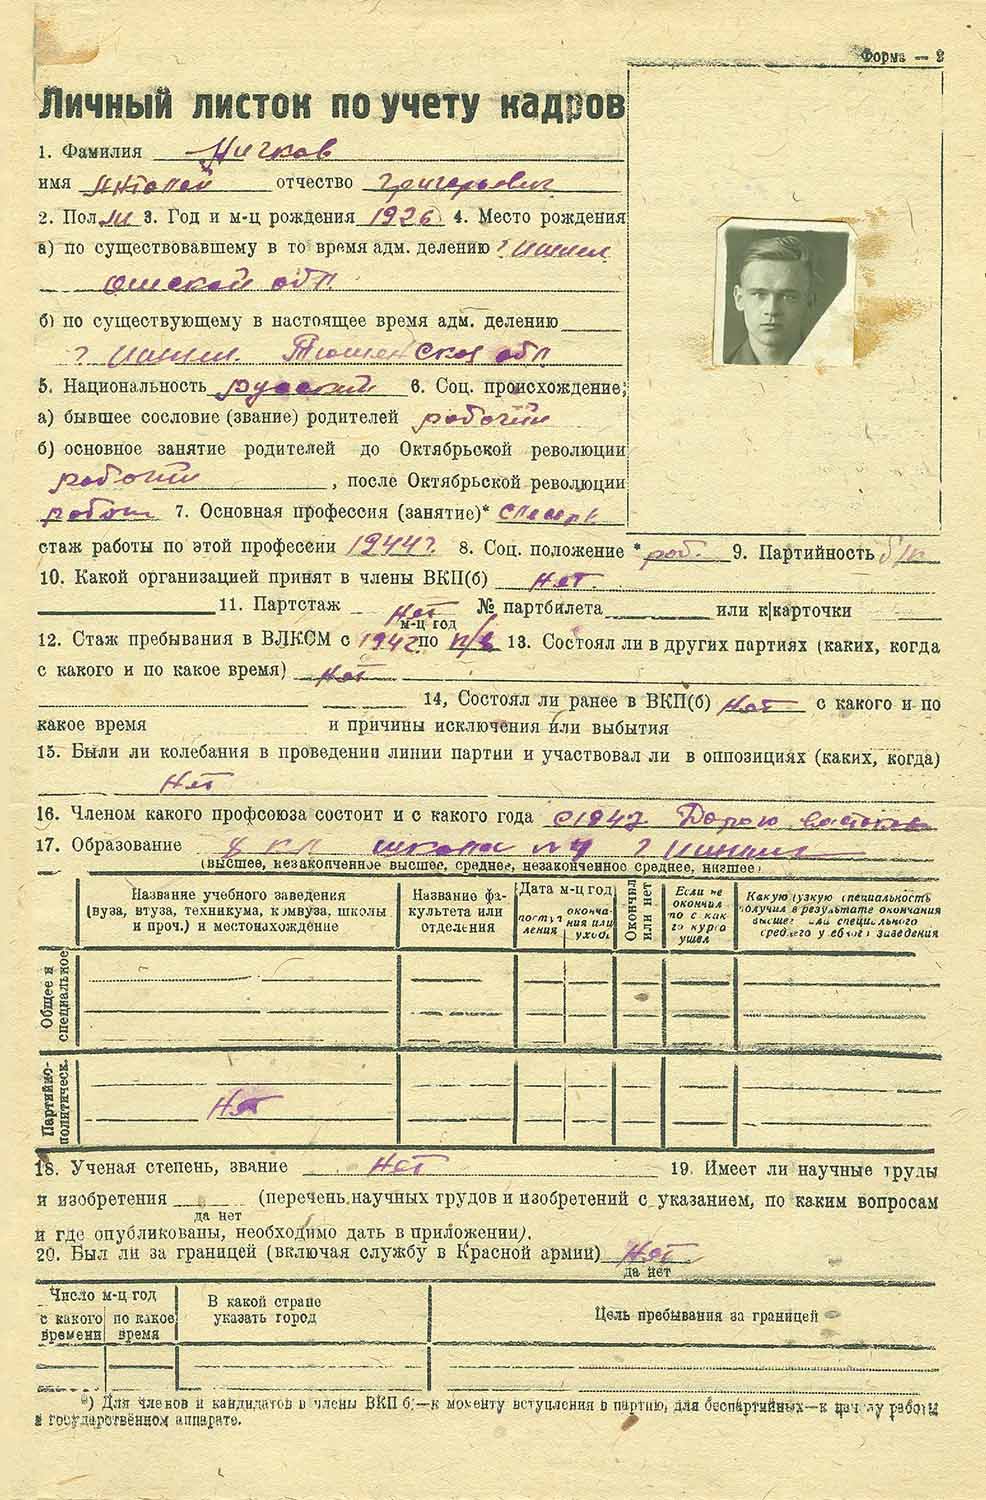 Форма — 2
Личный листок по учету кадров
1. Фамилия
имя отчество Григорьевич
2. Пол м 3. Год и м-ц рождения 1926 4. Место рождения
а) по существовавшему в то время адм. делению г Ишим
Омской обл.
б) по существующему в настоящее время адм. делению
г Ишим. Тюменской обл
5. Национальность русский 6. Соц. происхождение;
а) бывшее сословие (звание) родителей рабочий
б) основное занятие родителей до Октябрьской революции
рабочий, после Октябрьской революции
рабоч 7. Основная профессия (занятие)* слесарь
стаж работы по этой профессии 1944 г. 8. Соц. положение * раб. 9. Партийность б/п
10. Какой организацией принят в члены ВКП(б) нет.
11. Партстаж нет № партбилета или к|карточки
м-ц год
12. Стаж пребывания в ВЛКСМ с 1942 по н/в 13. Состоял ли в других партиях (каких, когда
с какого и по какое время) нет
14, Состоял ли ранее в ВКП(б) нет с какого и по
какое время и причины исключения или выбытия
15. Были ли колебания в проведении линии партии и участвовал ли в оппозициях (каких, когда)
Нет
16. Членом какого профсоюза состоит и с какого года с 1942
17. Образование школа № 4 г Ишим
(высшее, незаконченное высшее, среднее, незаконченное среднее, низшее)
Название учебного заведения Название фа- Дата м-ц год Окончил Если не Какую узкую специальность
(вуза, втуза, техникума, комвуза, школы культета или поступ- оконча- или нет окончил получил в результате окончания
и проч.) и местонахождение отделения ления ния или то с как высшего или специального
ухода го курса среднего учебного заведения
ушел
Общее и
специальное
Партийно-
политическ.
Нет
18. Ученая степень, звание нет 19. Имеет ли научные труды
и изобретения (перечень научных трудов и изобретений с указанием, по каким вопросам
да нет
и где опубликованы, необходимо дать в приложении).
20. Был ли за границей (включая службу в Красной армии) Нет
да нет
Число м-ц год В какой стране Цель пребывания за границей
с какого по какое указать город
времени время
*) Для членов и кандидатов в члены ВКП б,—к моменту вступления в партию, для беспартийных—к началу работы
в государственном аппарате.